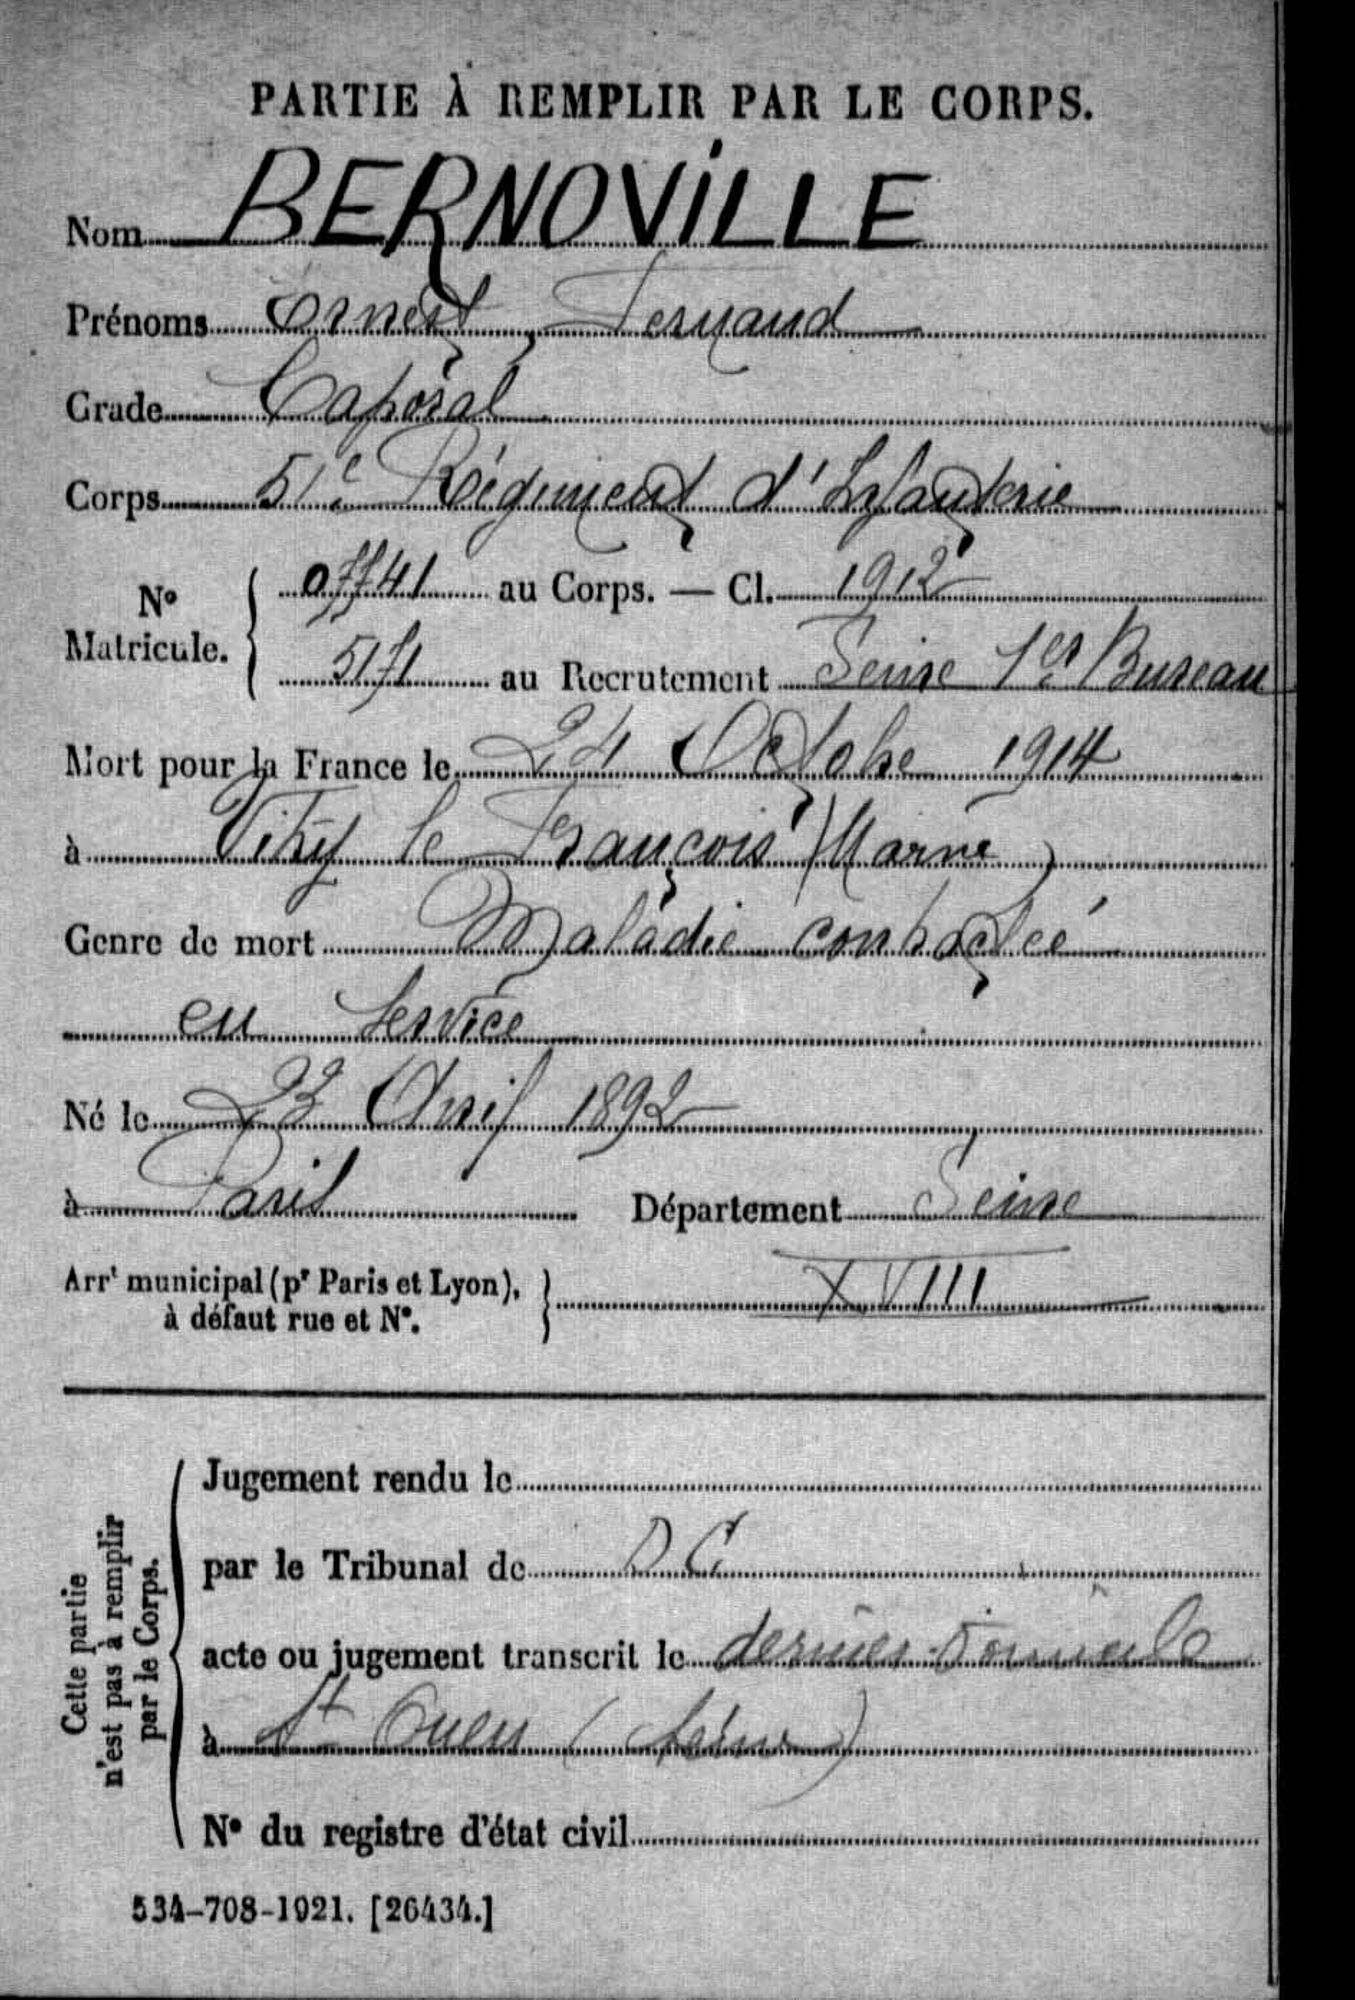 PARTIE À REMPLIR PAR LE CORPS.
Nom BERNOVILLE
Prénoms Ernest, Fernand
Grade Caporal
Corps 51e Régiment d'Infanterie
No Matricule. 07741 au Corps. — Cl. 1912
5171 au Recrutement Seine 1er Bureau
Mort pour la France le 24 Octobre 1914
à Vitry le François (Marne)
Genre de mort Maladie contractée
en service
Né le 23 Avril 1892
à Paris Département Seine
Arrt municipal (pr Paris et Lyon), à défaut rue et No. XVIII
Cette partie n'est pas à remplir par le Corps.
Jugement rendu le
par le Tribunal de D.C
acte ou jugement transcrit le dernier domicile
à St Ouen (Seine)
No du registre d'état civil
534-708-1921. [26434.]